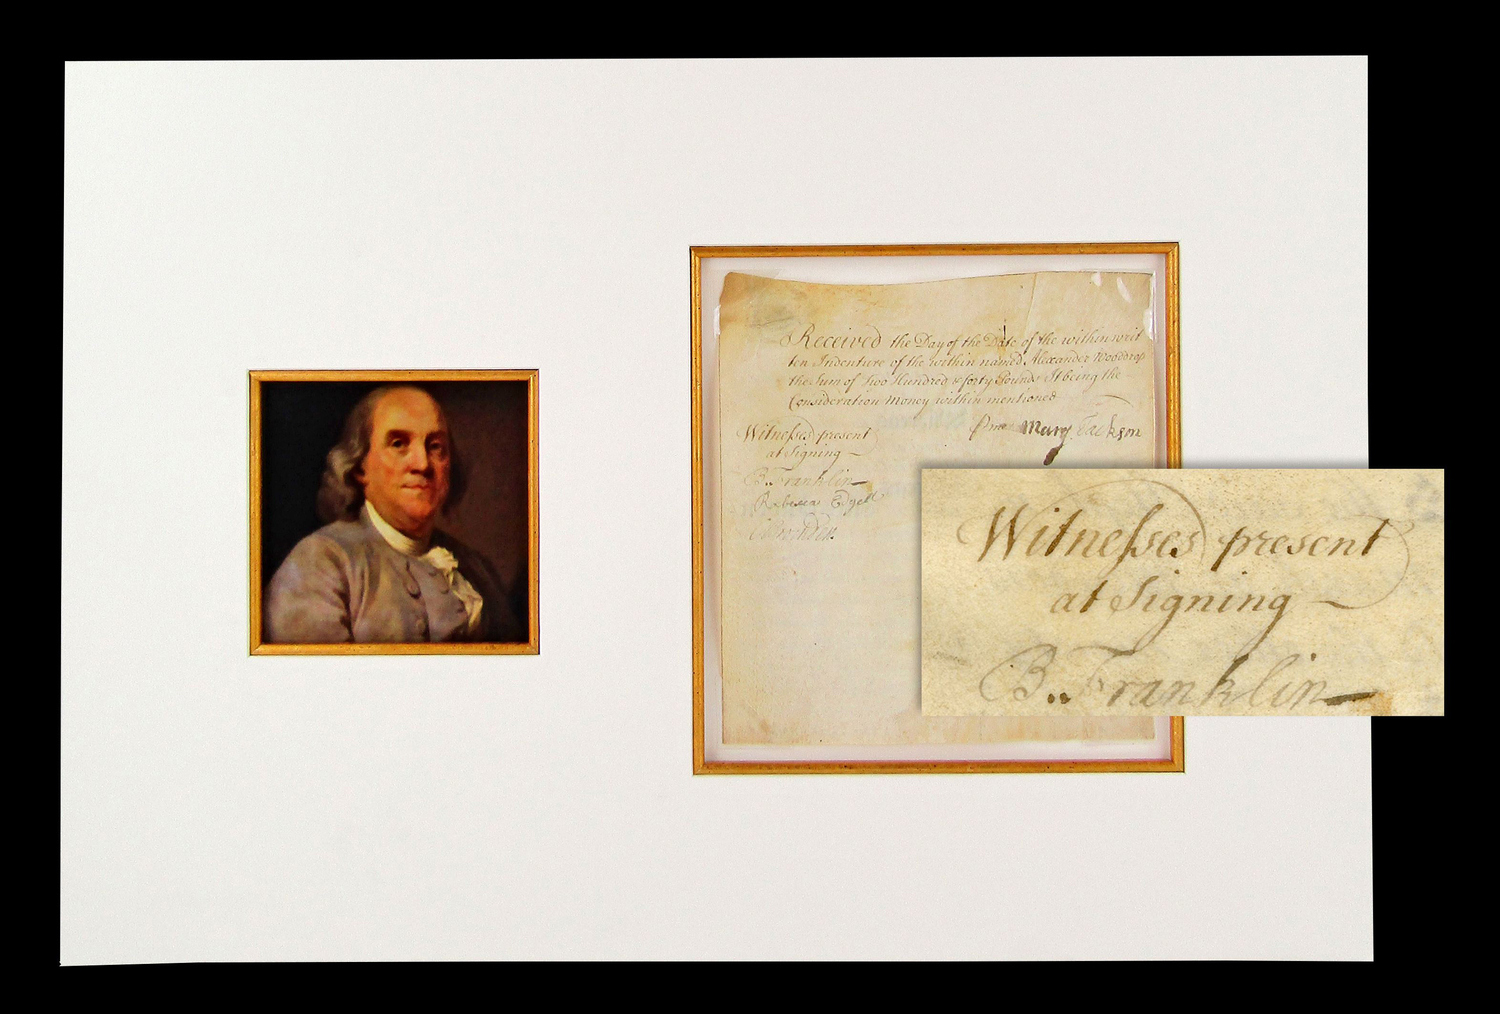 Received the Day of the Date of the within writ
ten Indenture of the within named Alexander Wooddrop
the Sum of Two Hundred & forty Pounds It being the
Consideration Money within mentioned
Mary Jackson
Witneſses present
at Signing —
B. Franklin
Rebecca Edgell
Witneſses present
at Signing —
B. Franklin